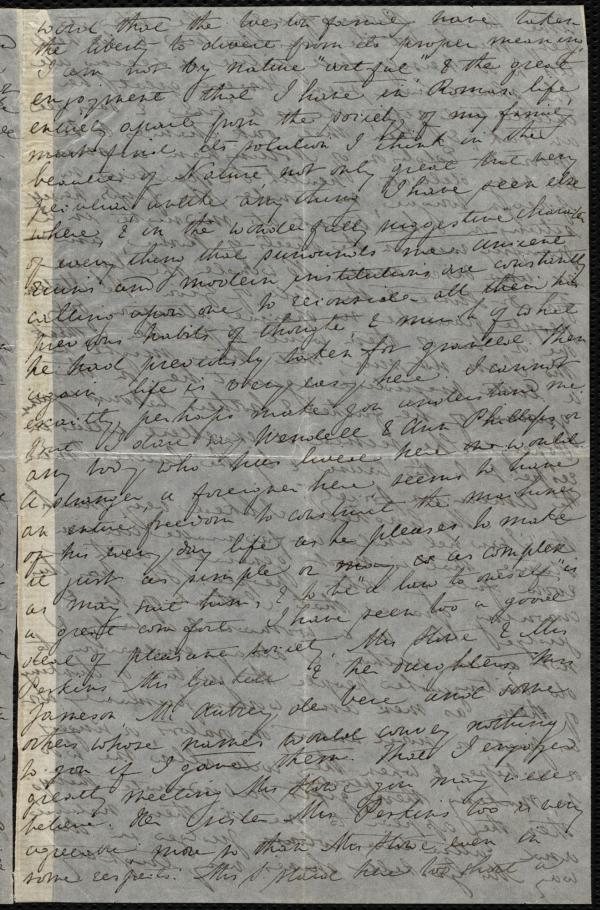 word that the Weston family have taken
the liberty to divert from its proper meaning
I am not by nature "artful" & the great
enjoyment that I have in Roman life
entirely apart from the society of my family
must find its solution I think in the
beauties of Nature not only great but very
peculiar unlike any thing I have seen else
where & in the wonderfully suggestive character
of every thing that surrounds me. Ancient
ruins and modern institutions are constantly
calling upon one to reconsider all his
previous habits of thought & much of what
he had previously taken for granted. Then
again life is very easy here. I cannot
exactly perhaps make you understand me
but I dare say Wendell & Ann Phillips or
any body who has lived here would
A stranger a foreigner here seems to have
an entire freedom to construct the machinery
of his every day life as he pleases to make
it just as simple or as complex
as may suit him, & to be "a law to oneself" is
a great comfort. I have seen too a good
deal of pleasant society. Mrs Stowe & Mrs
Perkins Mrs Gaskell & her daughters Mrs
Jameson, Mr Aubrey de Vere and some
others whose names would convey nothing
to you if I gave them. That I enjoyed
greatly meeting Mrs Stowe you may well
believe. Her sister Mrs Perkins too is very
agreeable more so than Mrs Stowe even in
some respects. Mrs S. staid here but a